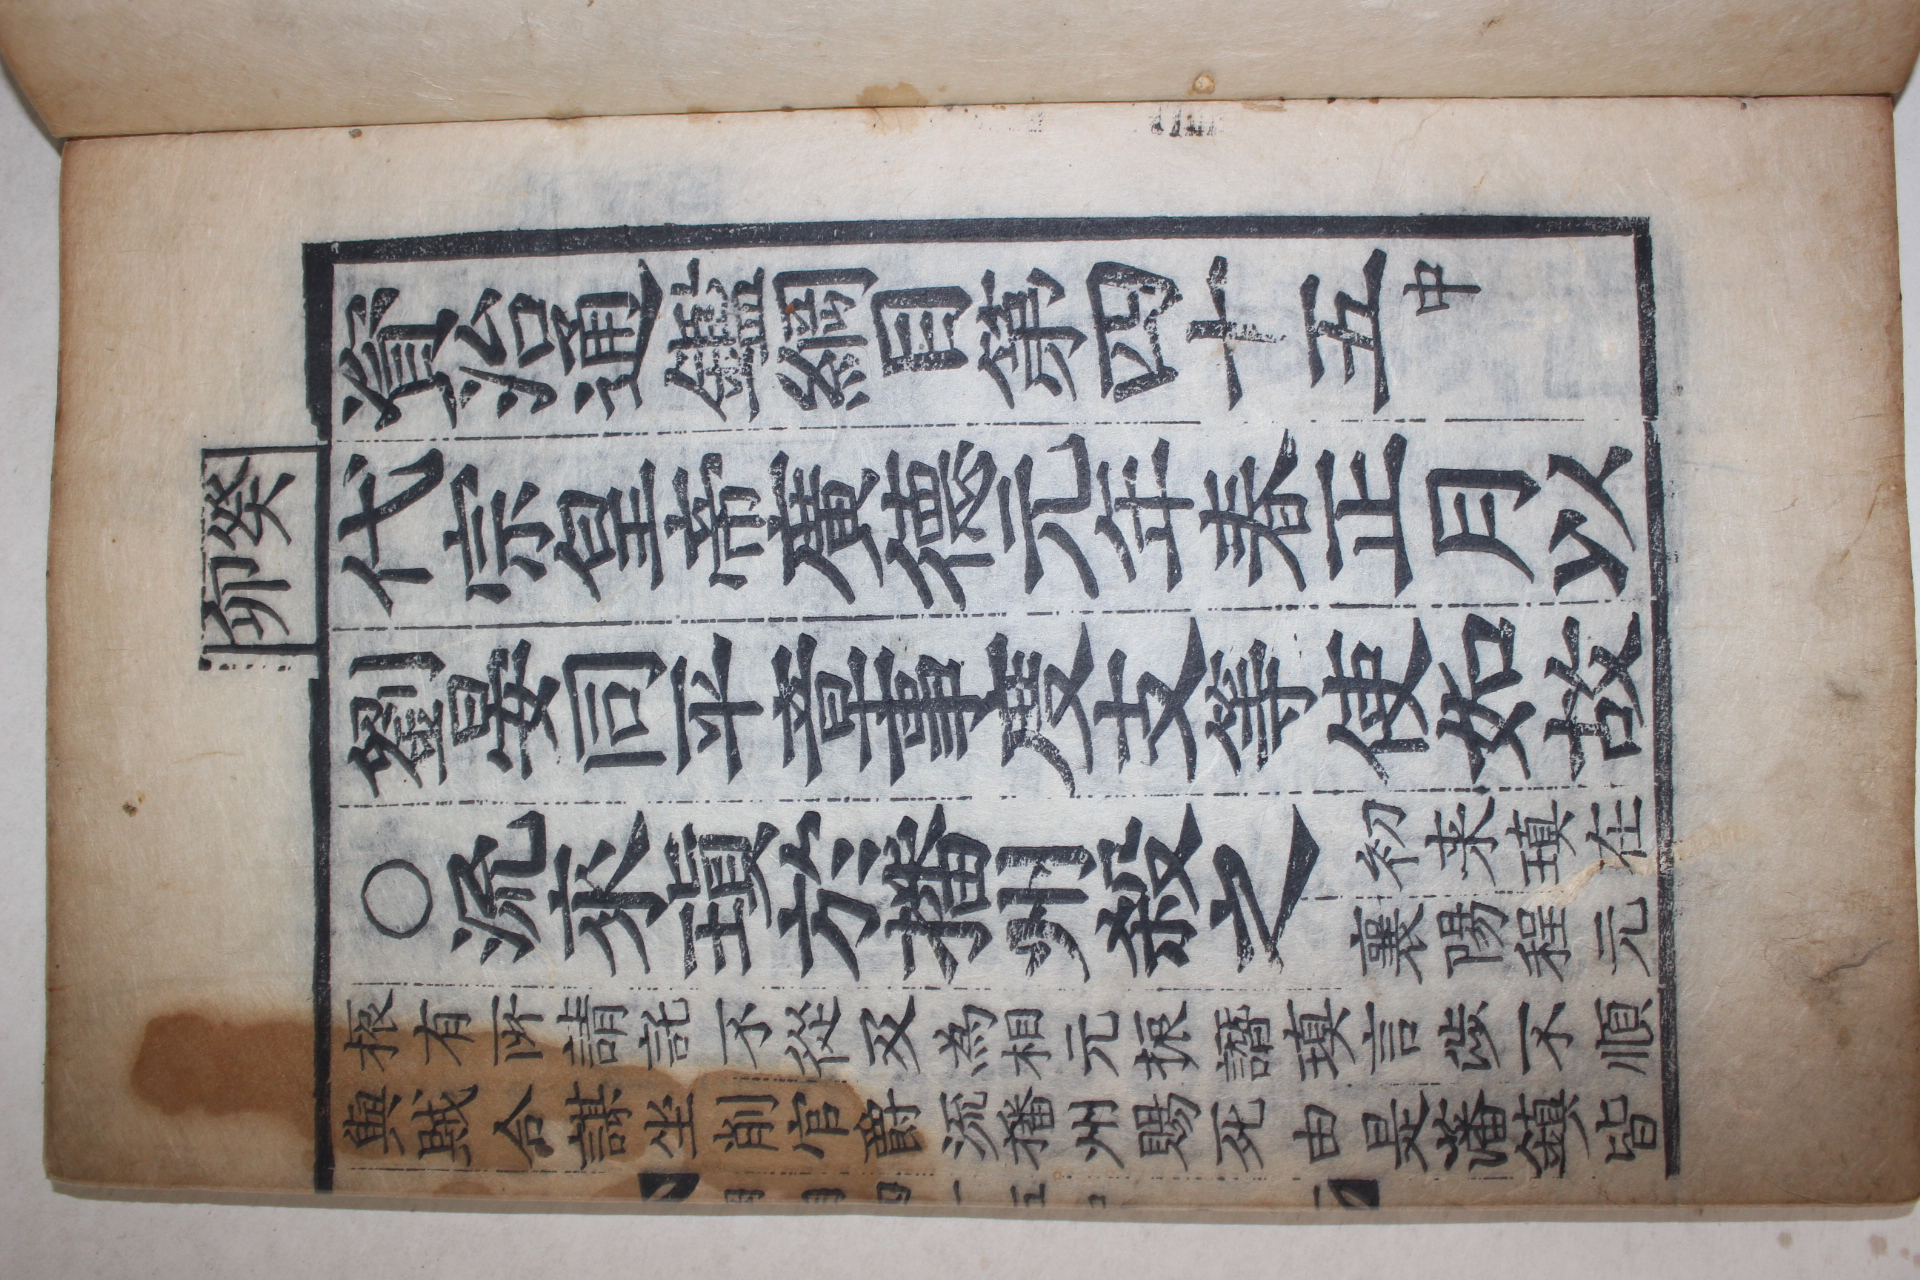 癸卯
資治通鑑綱目第四十五中
代宗皇帝廣德元年春正月以
劉晏同平章事度支等使如故
○流來瑱於播州殺之
初来瑱在
襄陽程元
振有所請託不從及為相元振譖瑱言涉不順
與賊合謀坐削官爵流播州賜死由是藩鎮皆